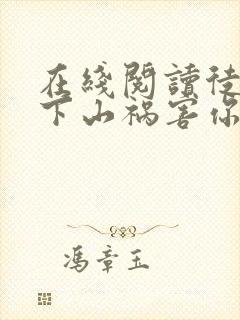 在綫閱讀徒
下山禍害你
馮章玉